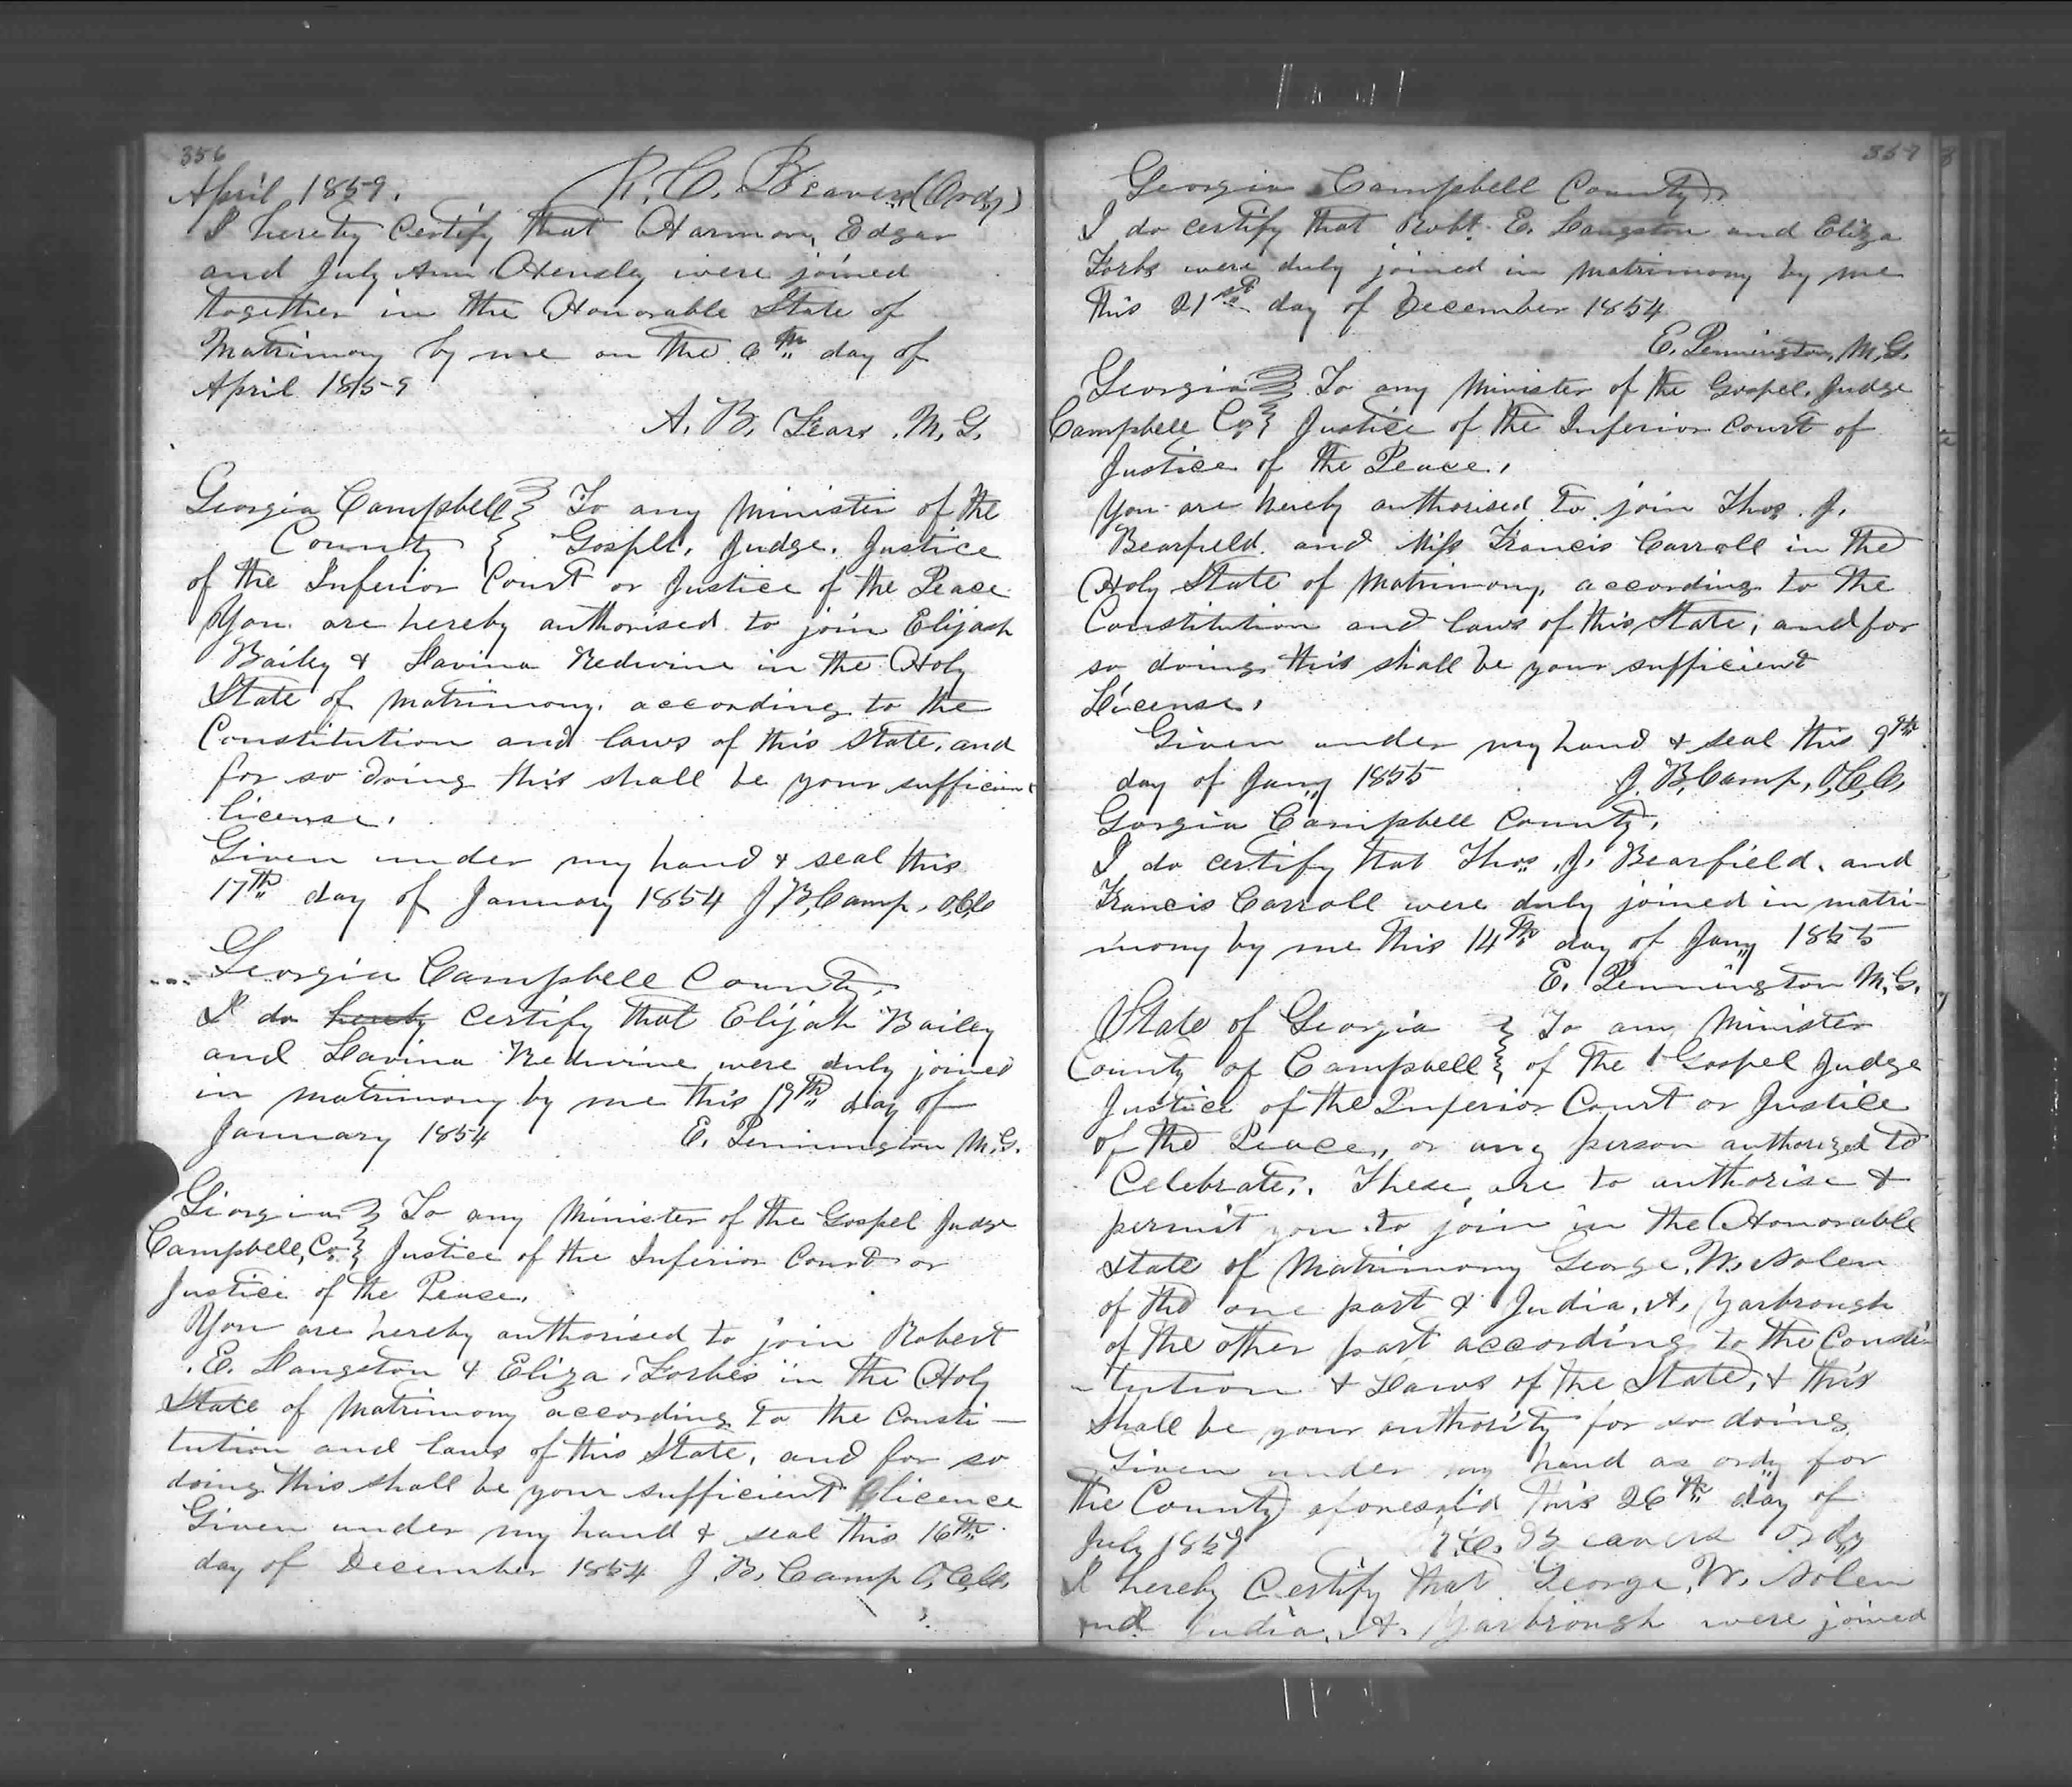 356
April 1859. R. C. Beavers (Ordy)
I hereby Certify that Harmon Edgar
and July Ann Hensley were joined
together in the Honorable State of
Matrimony by me on the 6th day of
April 1859
A. B. Fears, M. G.
Georgia Campbell } To any Minister of the
County } Gospel, Judge, Justice
of the Inferior Court or Justice of the Peace
You are hereby authorised to join Elijah
Bailey & Lavina Redwine in the Holy
State of matrimony, according to the
Constitution and laws of this State, and
for so doing this shall be your sufficient
license.
Given under my hand & seal this
17th day of January 1854 J. B. Camp, O.C.C.
Georgia Campbell County,
I do hereby certify that Elijah Bailey
and Lavina Redwine were duly joined
in matrimony by me this 19th day of
January 1854 E. Pennington M.G.
Georgia } To any Minister of the Gospel Judge
Campbell, Co. } Justice of the Inferior Court or
Justice of the Peace.
You are hereby authorised to join Robert
E. Langston & Eliza Forbes in the Holy
State of Matrimony according to the Consti-
tution and laws of this State, and for so
doing this shall be your sufficient licence
Given under my hand & seal this 16th
day of December 1854 J. B. Camp O.C.C.
357
Georgia Campbell County,
I do certify that Robt. E. Langston and Eliza
Forbs were duly joined in matrimony by me
this 21st day of December 1854
E. Pennington, M.G.
Georgia } To any Minister of the Gospel, Judge
Campbell Co } Justice of the Inferior Court of
Justice of the Peace,
You are hereby authorised to join Thos. J.
Bearfield and Miss Francis Carroll in the
Holy State of Matrimony, according to the
Constitution and laws of this State, and for
so doing this shall be your sufficient
License,
Given under my hand & seal this 9th
day of Jany 1855 J. B. Camp, O.C.C.
Gorgia Campbell County,
I do certify that Thos. J. Bearfield, and
Francis Carroll were duly joined in matri-
mony by me this 14th day of Jany 1855
E. Pennington M.G.
State of Georgia } To any Minister
County of Campbell } of the Gospel Judge
Justice of the Inferior Court or Justice
of the Peace, or any person authorized to
Celebrate. These are to authorise &
permit you to join in the Honorable
State of Matrimony George, W. Nolen
of the one part & India, A, Yarbrough
of the other part according to the Consti-
-tution & Laws of the State, & this
shall be your authority for so doing
Given under my hand as ordy for
the County aforesaid this 26th day of
July 1859 R. C. Beavers Ordy
I hereby Certify that George, W. Nolen
and India, A. Yarbrough were joined